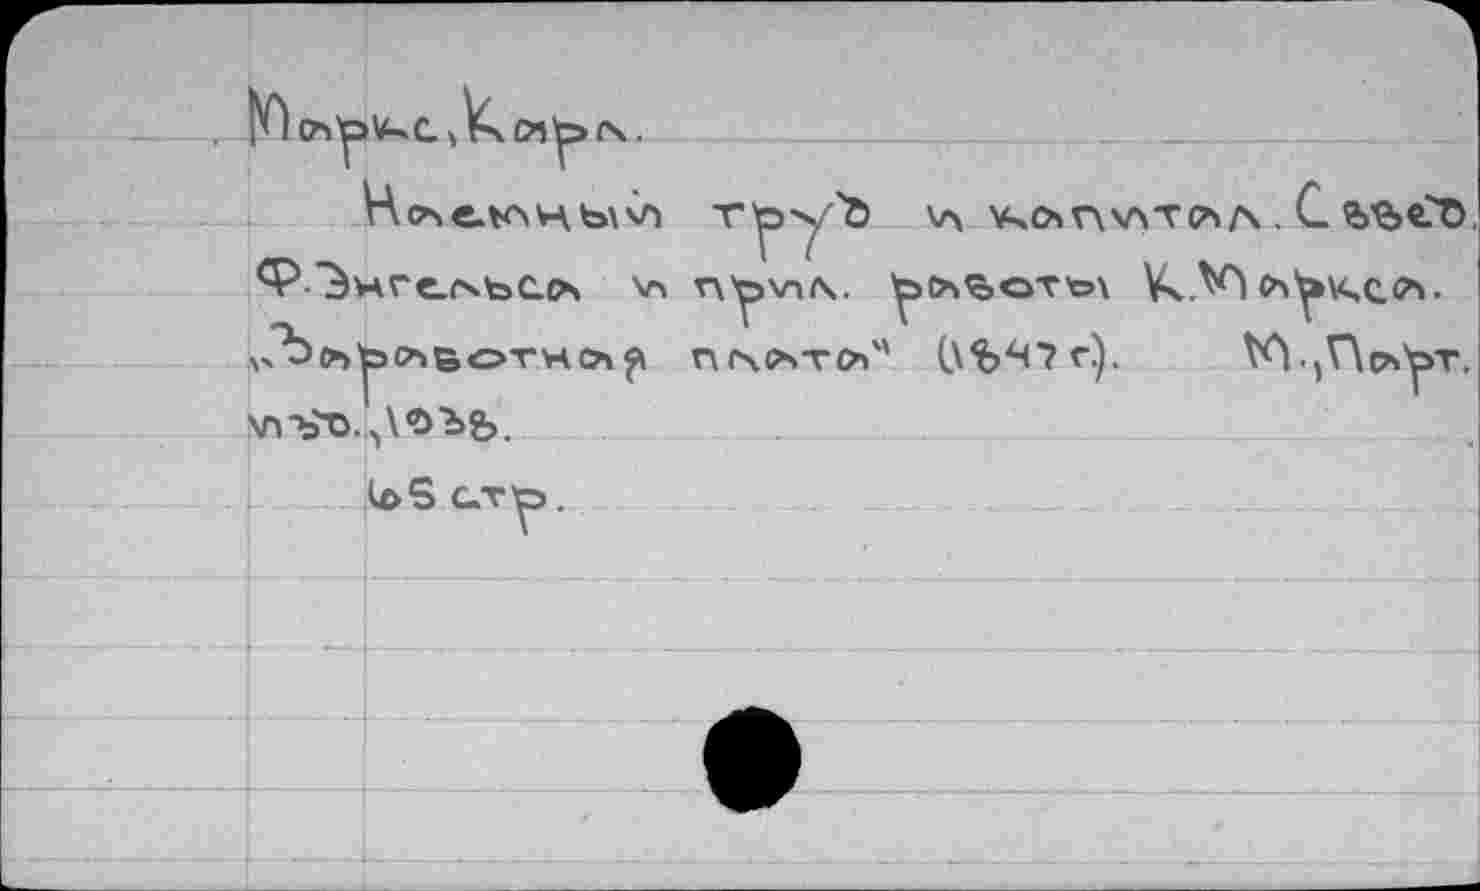 Маркс, Карл.
Наемный труд и капитал. С введ.
Ф. Энгельса и прил. работы К. Маркса.
„Заработная плата" (1847 г.). М., Парт.
изд., 1933.
65 стр.